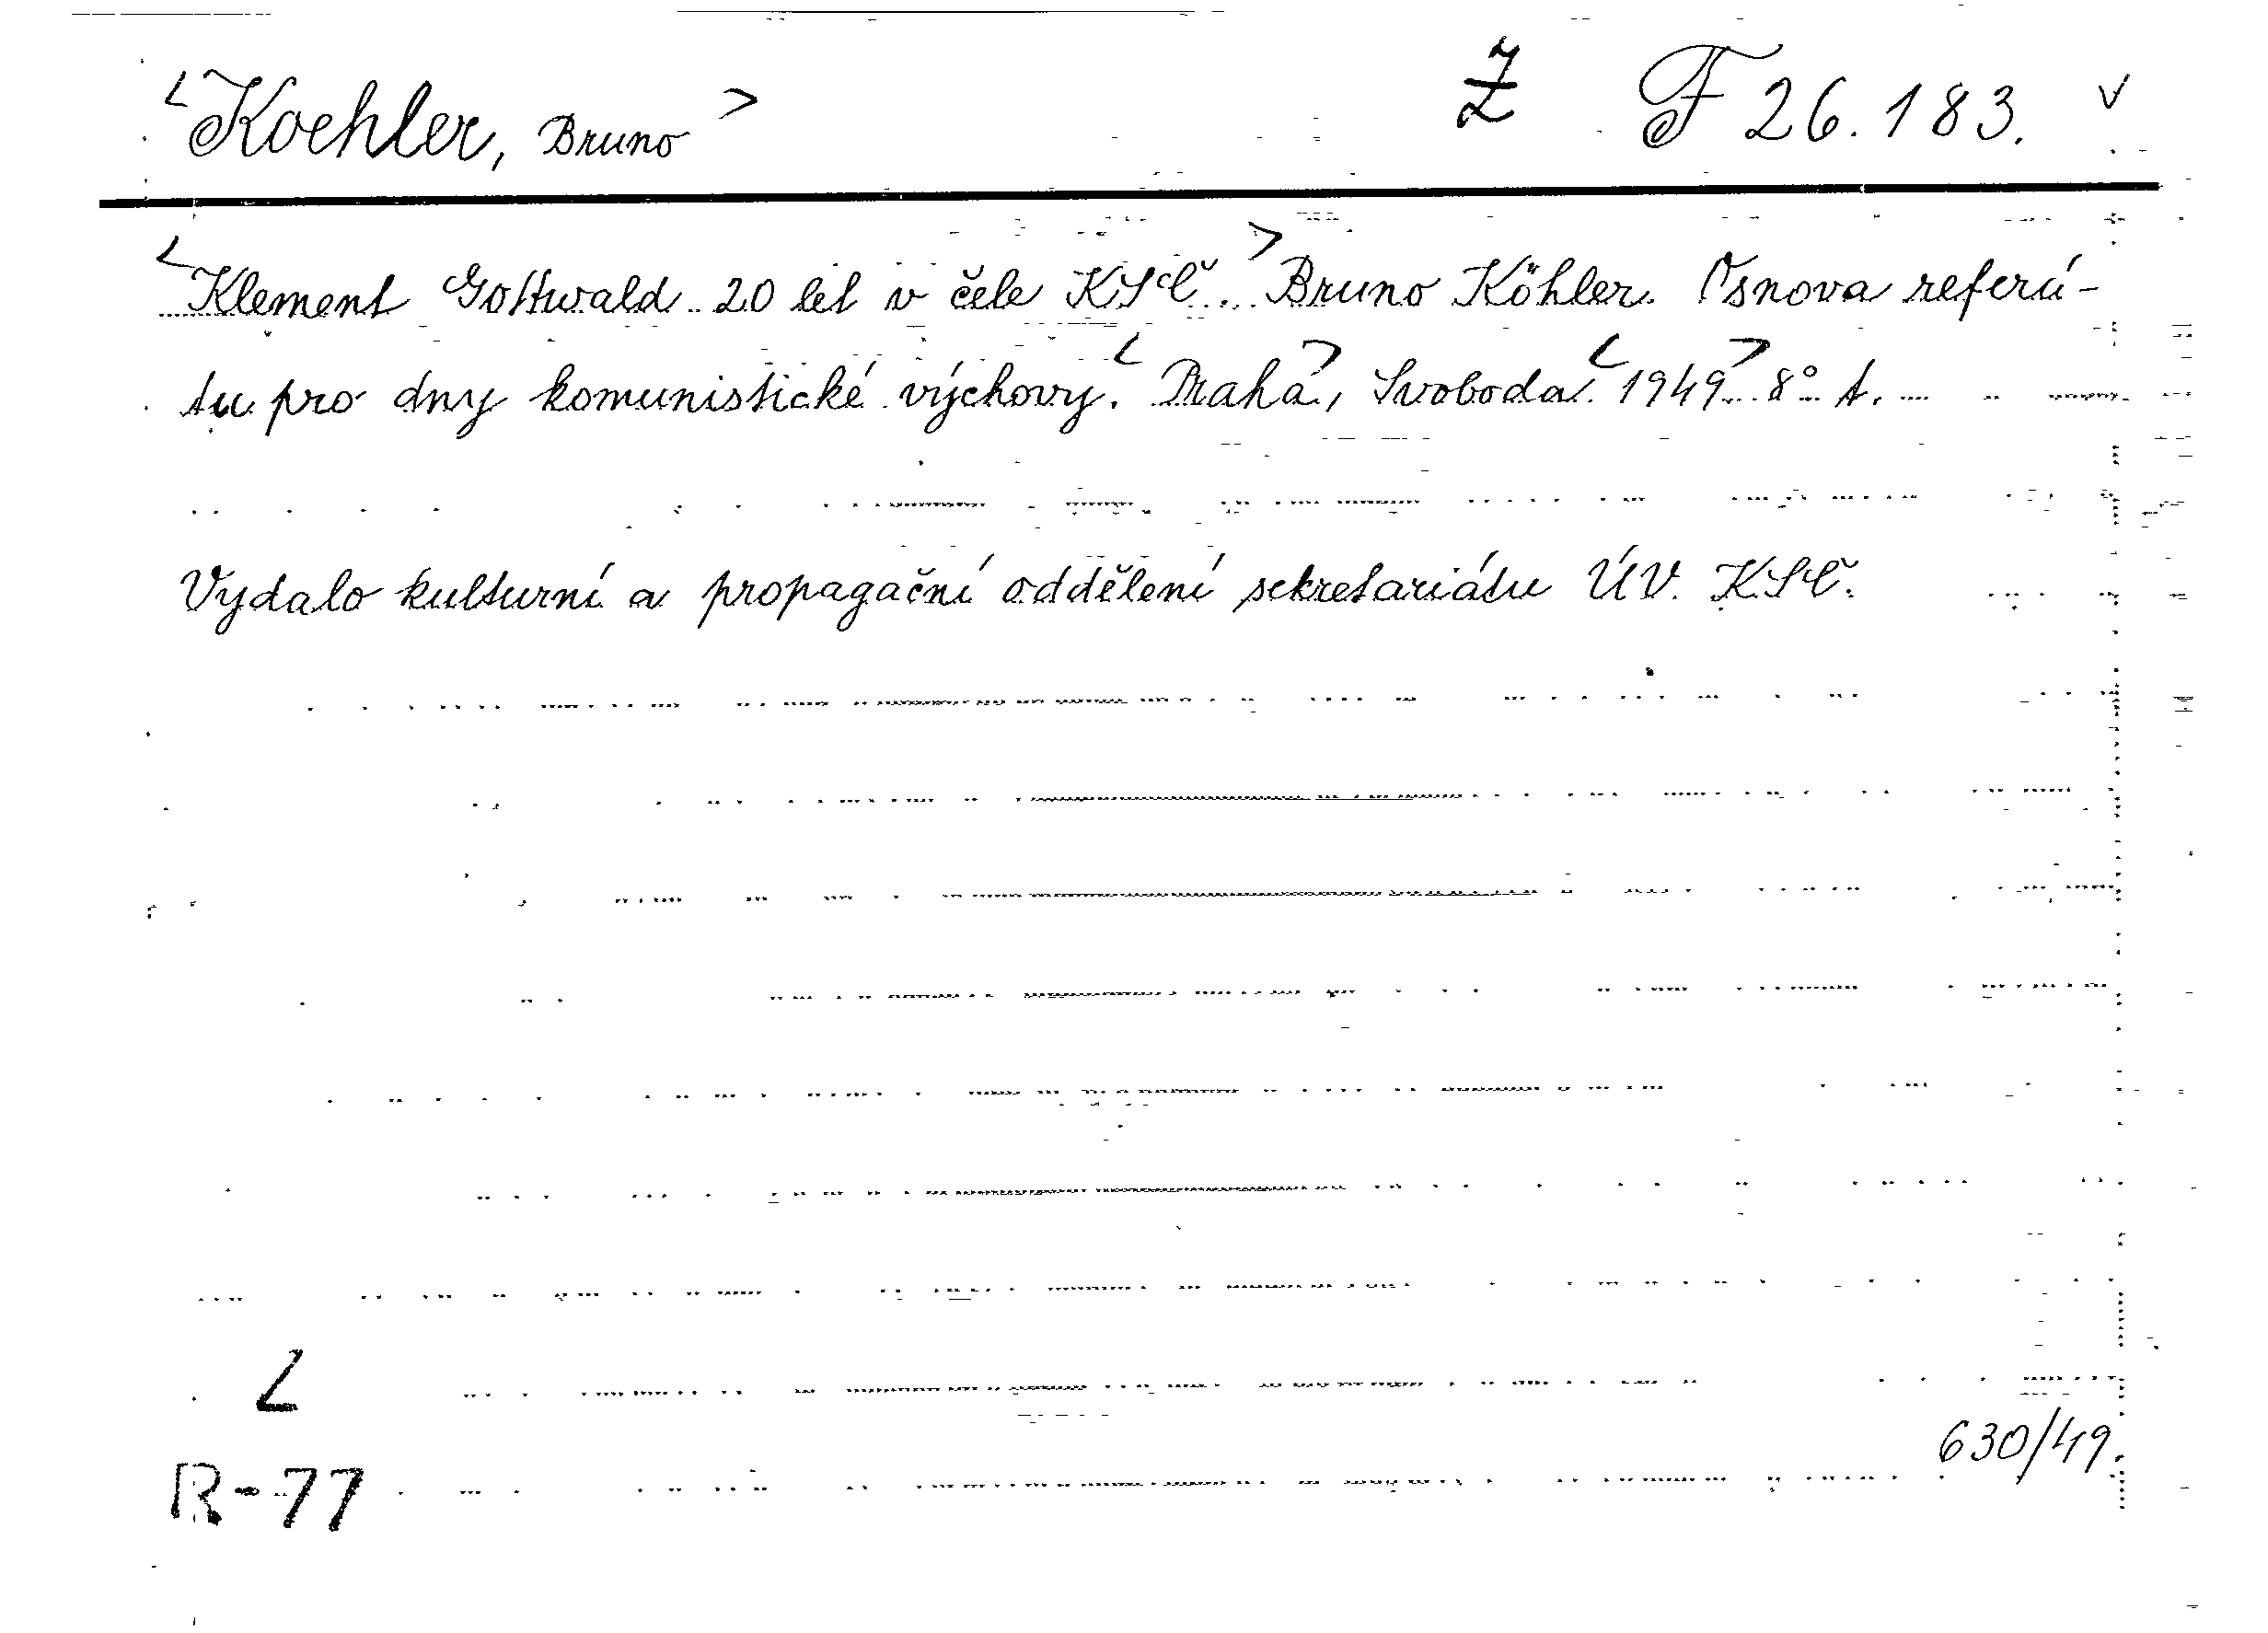 <Koehler, Bruno> Ž F 26.183. v
<Klement Gottwald 20 let v čele KSČ.> Bruno Köhler. Osnova referá-
tu pro dny komunistické výchovy. <Praha>, Svoboda <1949> 8° t.
Vydalo kulturní a propagační oddělení sekretariátu ÚV. KSČ.
L
630/49.
R-77